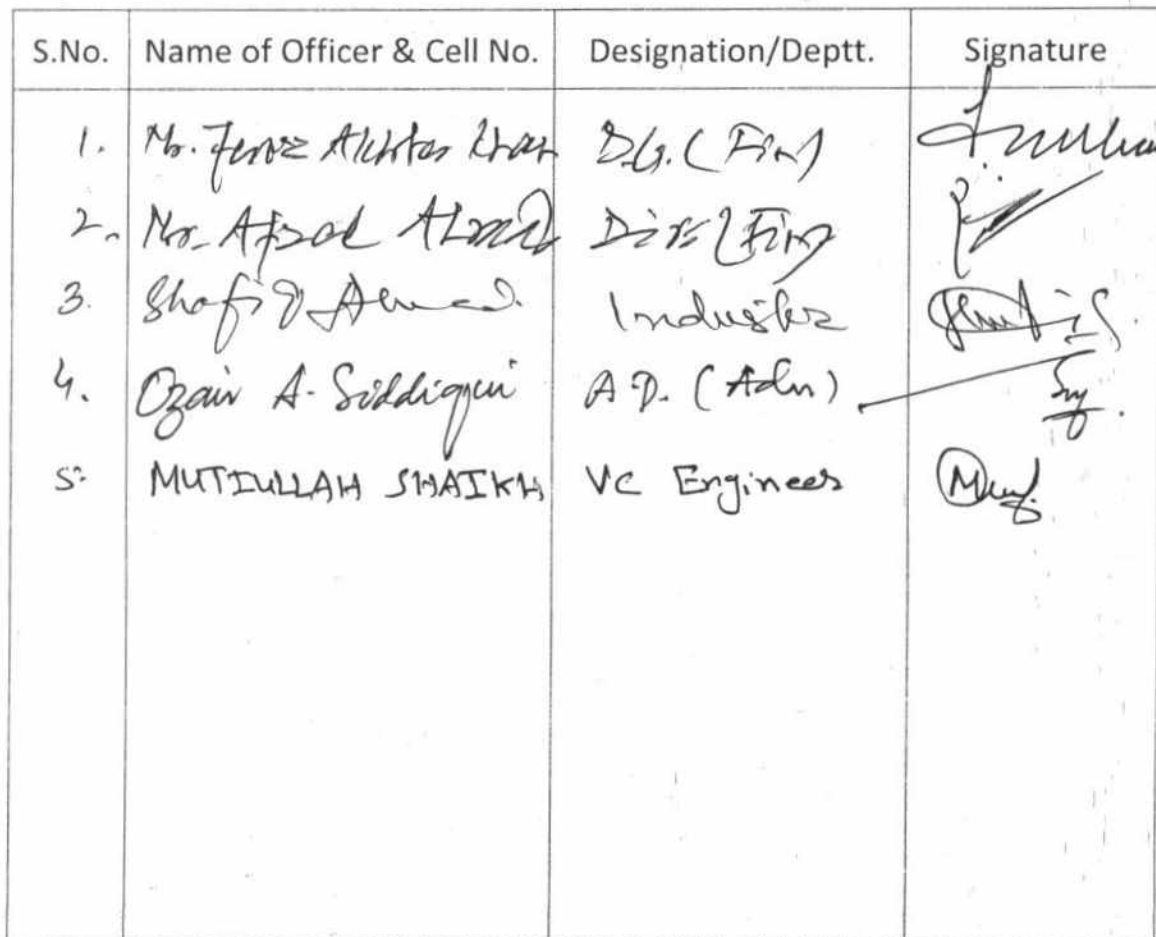 S.No. Name of Officer & Cell No. Designation/Deptt. Signature
1. Mr. Feroz Akhtar Khan D.G. (Fin)
2. Mr. Afzal Ahmad Dir (Fin)
3. Shafiq Ahmad
4. Ozair A. Siddiqui A.D. (Adm)
5. MUTIULLAH SHAIKH VC Engineer